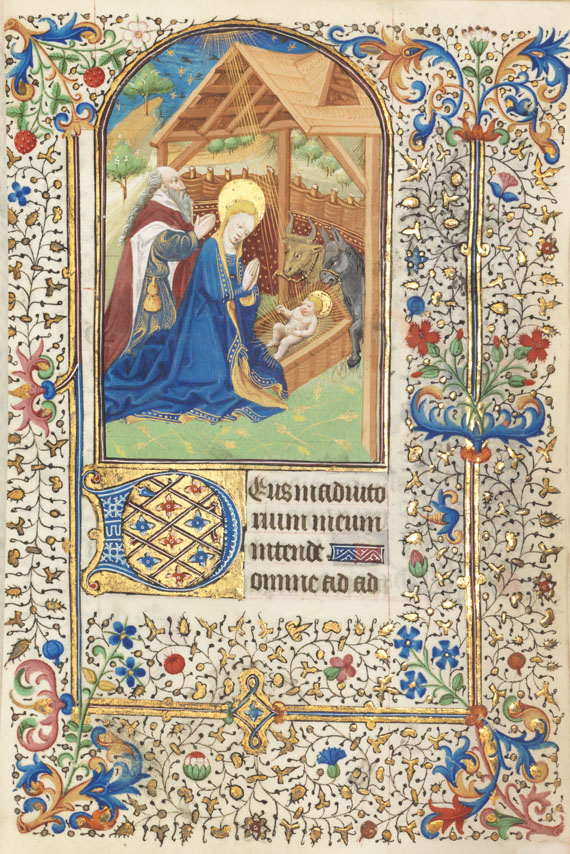 Deus in adiuto
rium meum
intende
Domine ad ad